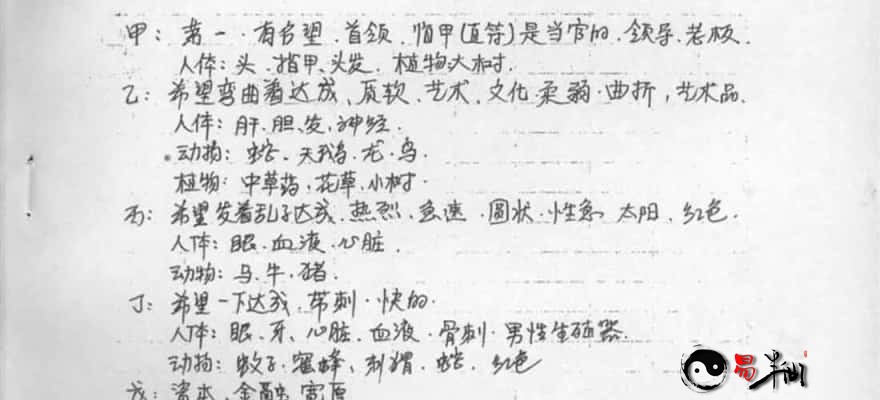 甲：第一·有名望.首领.指甲(直符)是当官的.领导.老板.
人体：头.指甲、头发.植物大树.
乙：希望弯曲着达成、质软、艺术.文化柔弱·曲折，艺术品.
人体：肝、胆、发、神经.
动物：蛇、天鹅、龙、鸟.
植物：中草药、花草、小树.
丙：希望发着乱子达成.热烈.急速·圆状·性急 太阳.红色.
人体：眼.血液.心脏.
动物：马.牛.猪.
丁：希望一下达成、带刺·快的.
人体：眼、牙、心脏、血液·骨刺·男性生殖器.
动物：蚊子、蜜蜂、刺猬、蛇、红色
戊：资本.金融.富原
易半仙